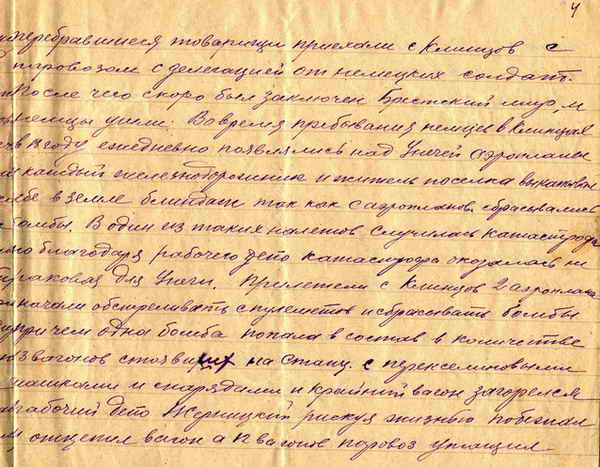 4
перебравшиеся товарищи приехали с Клинцов с
паровозом с делегацией от немецких солдат.
После чего скоро был заключен Брестский мир, и
немцы ушли. Во время пребывания немцев в Клинцах
в 18 году ежедневно появлялись над Унечей аэропланы
и каждый железнодорожник и житель поселка выкапывал
себе в земле блиндаж так как с аэропланов сбрасывались
бомбы. В один из таких налетов случилась катастрофа
но благодаря рабочего депо катастрофа оказалась не
роковая для Унечи. Прилетели с Клинцов 2 аэроплана
и начали обстреливать с пулеметов и сбрасывать бомбы
при чем одна бомба попала в состав в количестве
вагонов стоявших на станц. с пироксилиновыми
шашками и снарядами и крайний вагон загорелся
рабочий депо Жерницкий рискуя жизнью побежал
и отцепил вагон а 12 вагонов паровоз утащил